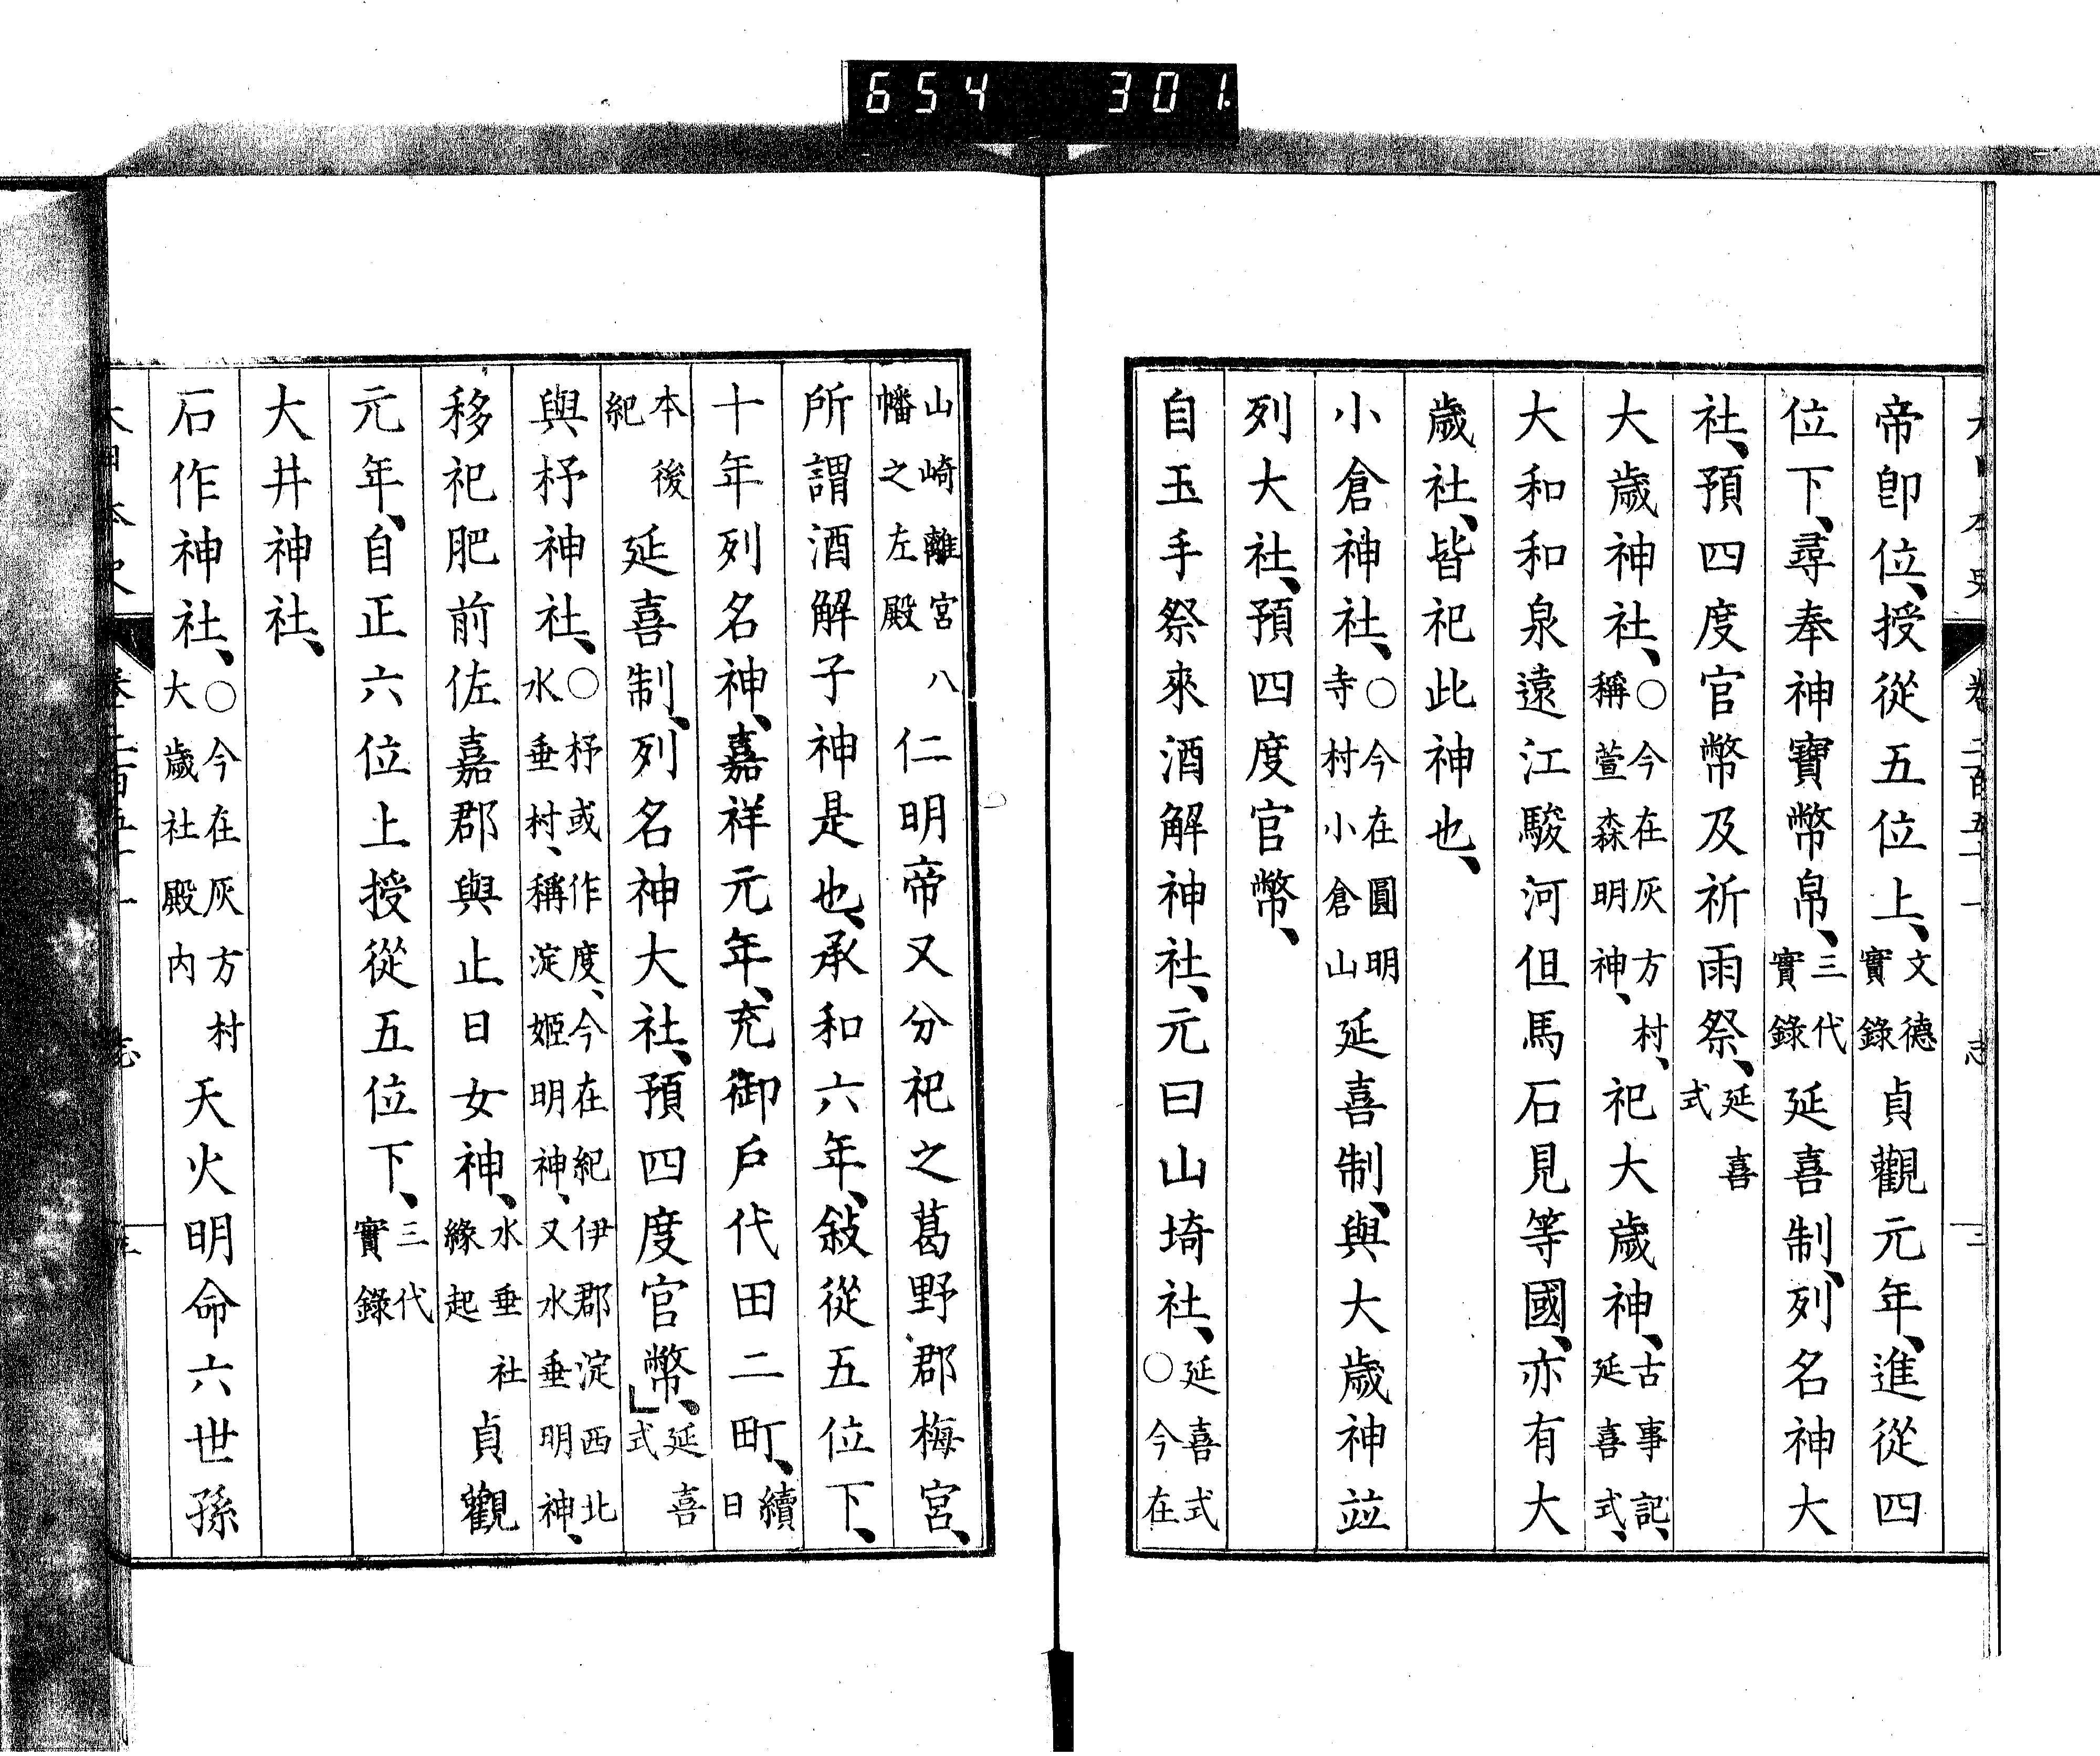 654 301
大日本史 卷二百五十一 志 三
帝卽位、授從五位上、文德實錄貞觀元年、進從四
位下、尋奉神寶幣帛、三代實錄延喜制、列名神大
社、預四度官幣及祈雨祭、延喜式
大歲神社、○今在灰方村、稱萱森明神、祀大歲神、古事記、延喜式、
大和和泉遠江駿河但馬石見等國、亦有大
歲社、皆祀此神也、
小倉神社、○今在圓明寺村小倉山延喜制、與大歲神竝
列大社、預四度官幣、
自玉手祭來酒解神社、元曰山埼社、延喜式○今在
山崎離宮八幡之左殿仁明帝又分祀之葛野郡梅宮、
所謂酒解子神是也、承和六年、敍從五位下、
十年列名神、嘉祥元年、充御戶代田二町、續日
本後紀延喜制、列名神大社、預四度官幣、延喜式
與杼神社、○杼或作度、今在紀伊郡淀西北水垂村、稱淀姬明神、又水垂明神、
移祀肥前佐嘉郡與止日女神、水垂社緣起貞觀
元年、自正六位上授從五位下、三代實錄
大井神社、
石作神社、○今在灰方村大歲社殿內天火明命六世孫
大日本史 卷二百五十一 志